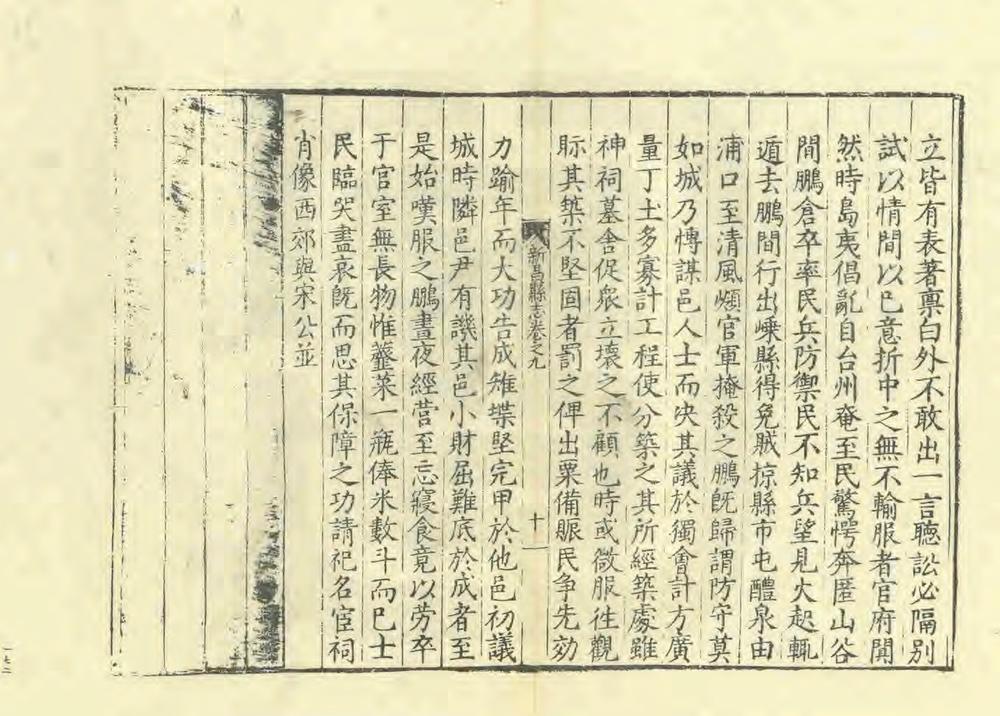 立皆有表著禀白外不敢出一言聽訟必隔別
試以情間以己意折中之無不輸服者官府閴
然時島夷倡亂自台州奄至民驚愕奔匿山谷
間鵬倉卒率民兵防禦民不知兵望見火起輒
遁去鵬間行出嵊縣得免賊掠縣市屯醴泉由
浦口至清風嶺官軍掩殺之鵬旣歸謂防守莫
如城乃愽謀邑人士而决其議於獨會計方廣
量丁土多寡計工程使分築之其所經築處雖
神祠墓舍促衆立壞之不顧也時或微服徃觀
眎其築不堅固者罰之俾出粟備賑民争先効
新昌縣志卷之九
十
力踰年而大功告成雉堞堅完甲於他邑初議
城時隣邑尹有譏其邑小財屈難底於成者至
是始嘆服之鵬晝夜經营至忘寢食竟以劳卒
于官室無長物惟虀菜一瓶俸米數斗而已士
民臨哭盡哀旣而思其保障之功請祀名宦祠
肖像西郊與宋公並
一七二